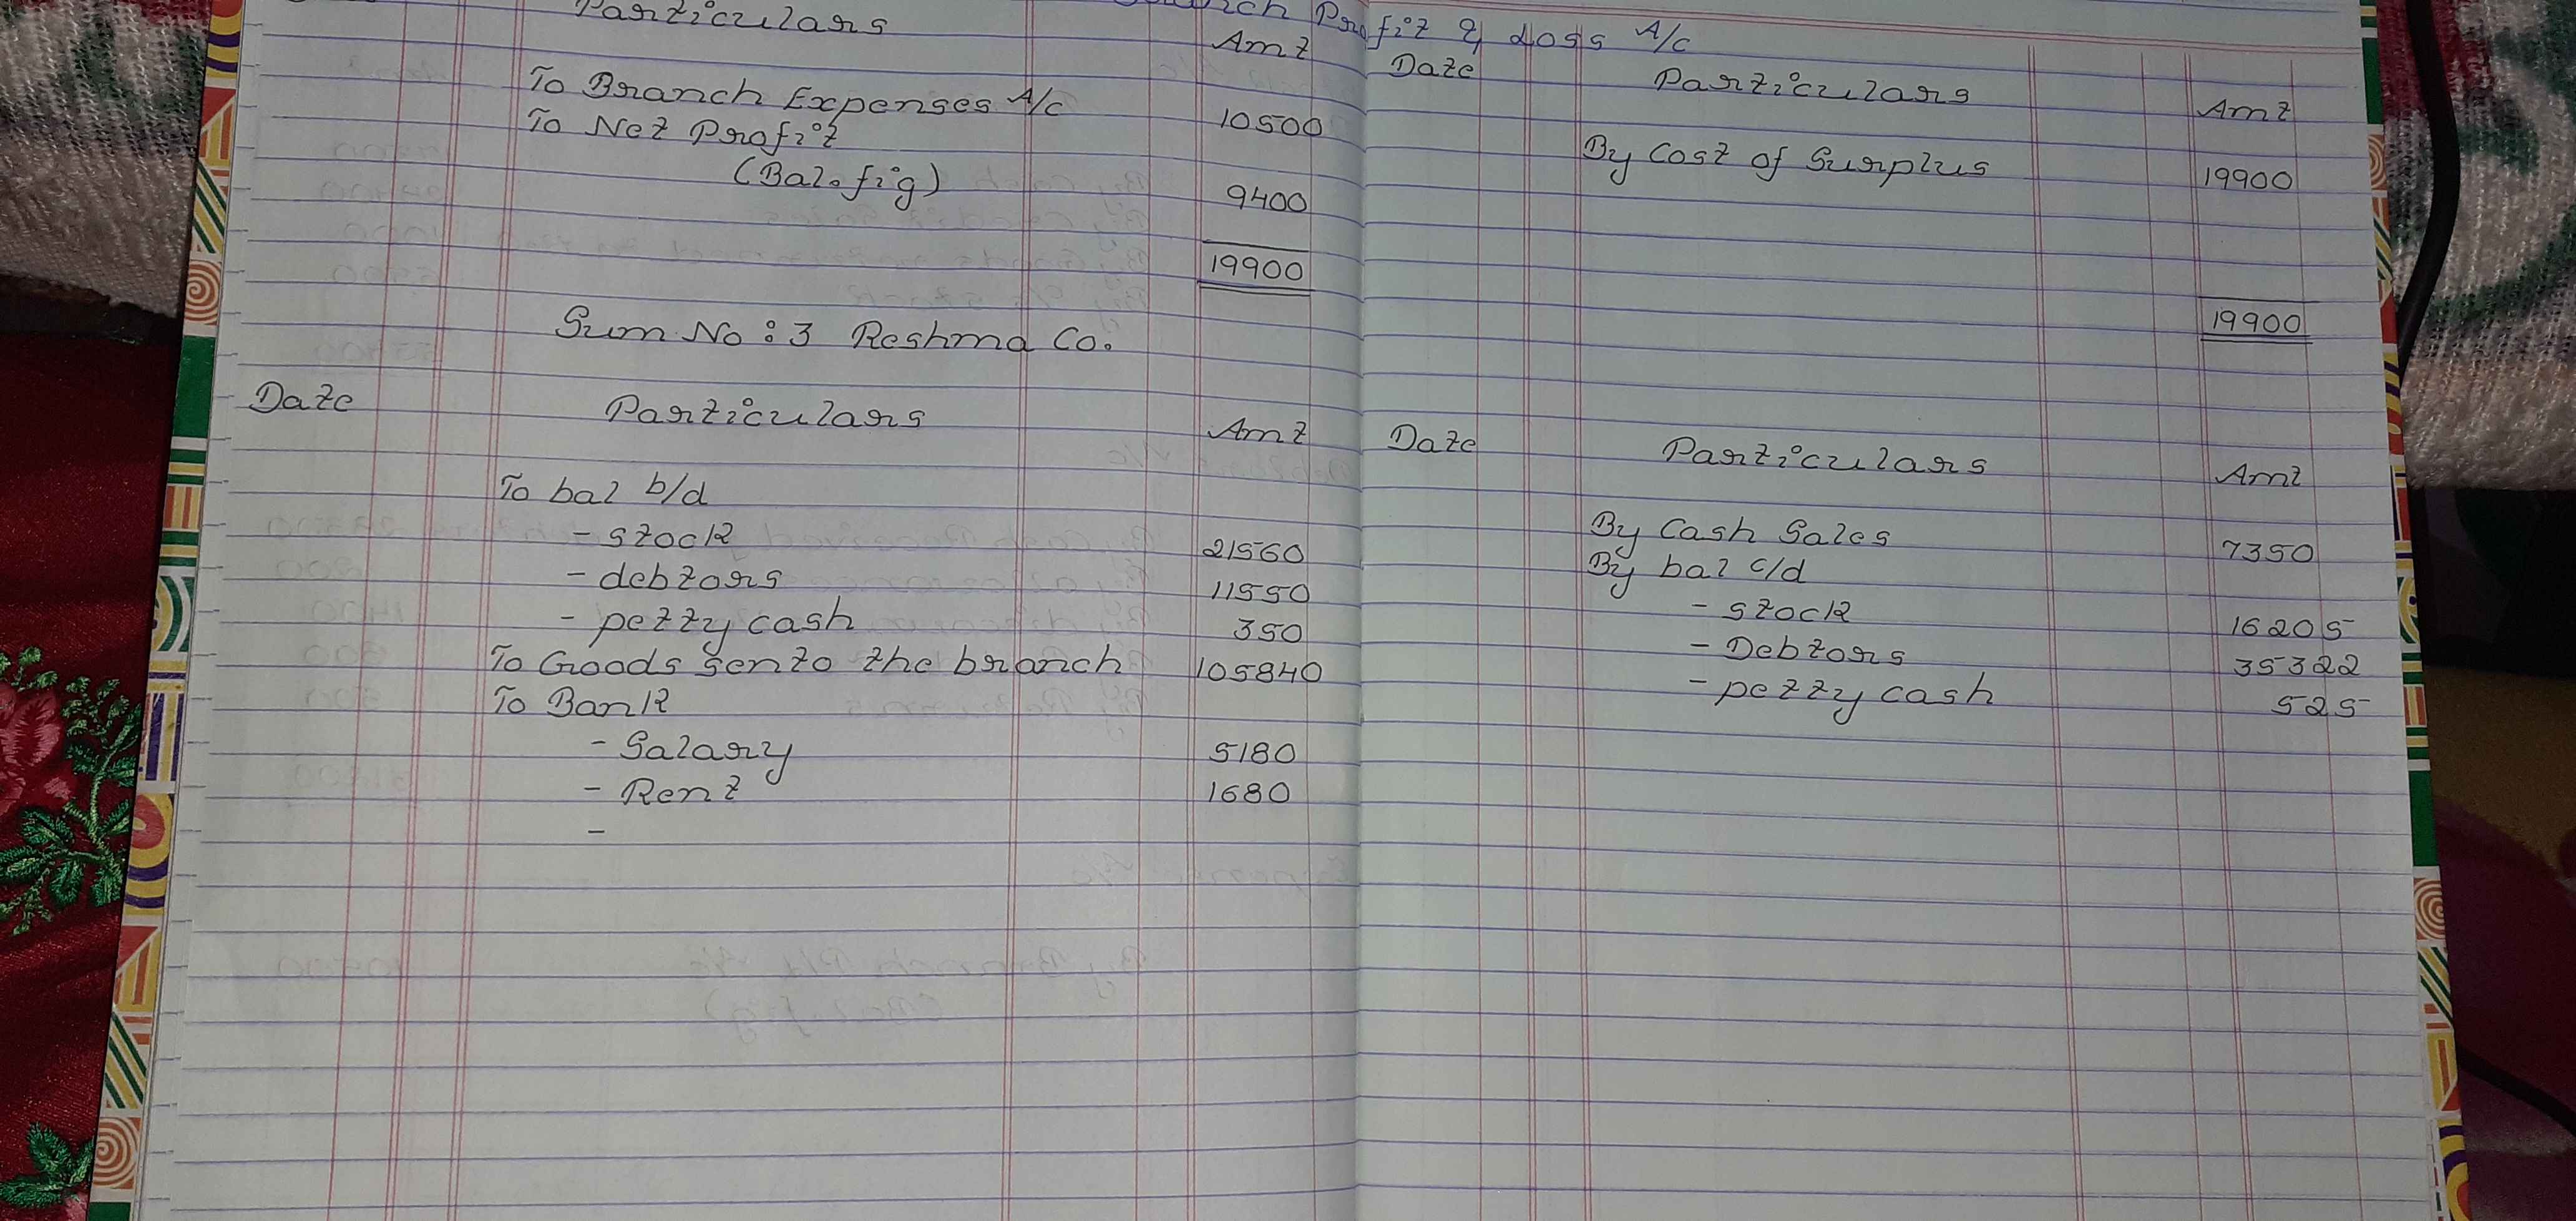 Branch Profit & Loss A/c
Particulars Amt Date Particulars Amt
To Branch Expenses A/c 10500 By Cost of Surplus 19900
To Net Profit
(Bal. fig) 9400
19900 19900
Sum No : 3 Reshma Co.
Date Particulars Amt Date Particulars Amt
To bal b/d By Cash Sales 7350
- stock 21560 By bal c/d
- debtors 11550 - stock 16205
- petty cash 350 - Debtors 35322
To Goods sento the branch 105840 - petty cash 525
To Bank
- Salary 5180
- Rent 1680
-